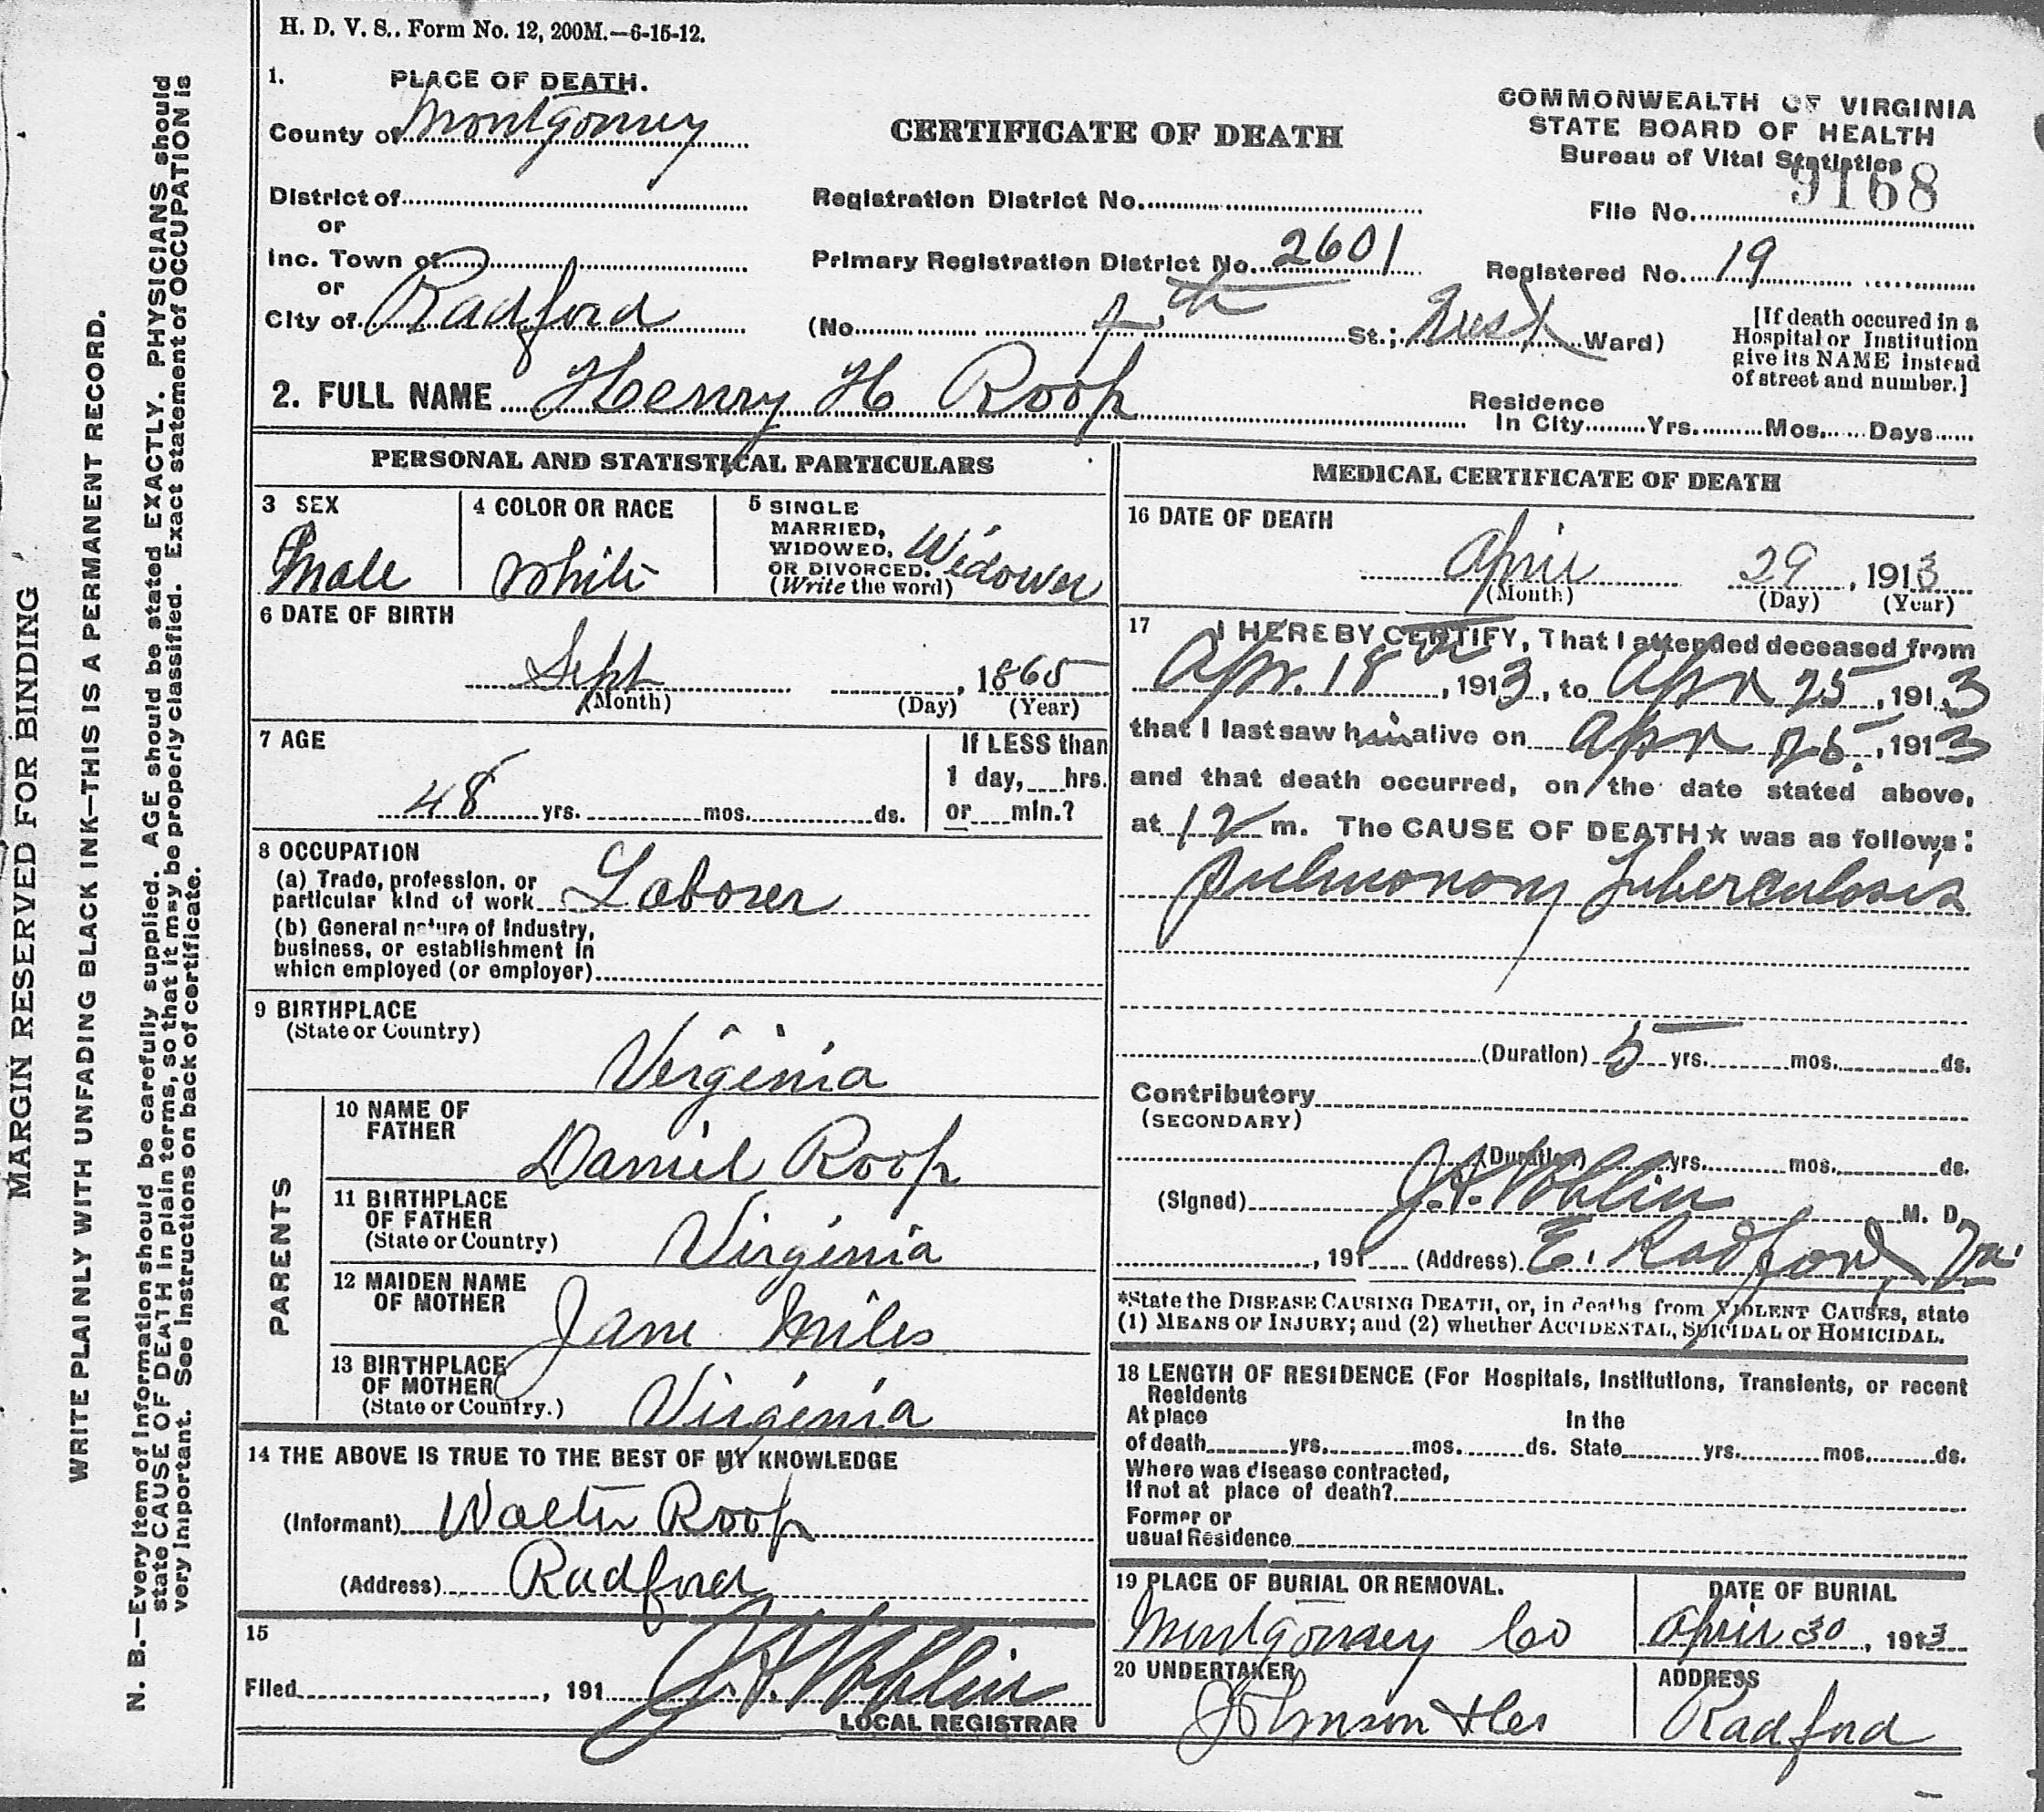 H. D. V. S.. Form No. 12, 200M.—6-15-12.
1. PLACE OF DEATH.
County of Montgomery
District of
or
Inc. Town of
or
City of Radford
CERTIFICATE OF DEATH
Registration District No.
Primary Registration District No. 2601
(No. St.; West Ward)
COMMONWEALTH OF VIRGINIA
STATE BOARD OF HEALTH
Bureau of Vital Statistics
File No. 9168
Registered No. 19
[If death occured in a
Hospital or Institution
give its NAME instead
of street and number.]
2. FULL NAME Henry H Roop
Residence
In City Yrs. Mos. Days
PERSONAL AND STATISTICAL PARTICULARS
3 SEX
Male
4 COLOR OR RACE
White
5 SINGLE
MARRIED,
WIDOWED,
OR DIVORCED.
(Write the word)
Widower
6 DATE OF BIRTH
Sept , 1865
(Month) (Day) (Year)
7 AGE
48 yrs. mos. ds.
If LESS than
1 day, hrs.
or min.?
8 OCCUPATION
(a) Trade, profession, or
particular kind of work Laborer
(b) General nature of Industry,
business, or establishment in
which employed (or employer)
9 BIRTHPLACE
(State or Country)
Virginia
PARENTS
10 NAME OF
FATHER
Daniel Roop
11 BIRTHPLACE
OF FATHER
(State or Country)
Virginia
12 MAIDEN NAME
OF MOTHER
Jane Miles
13 BIRTHPLACE
OF MOTHER
(State or Country.)
Virginia
14 THE ABOVE IS TRUE TO THE BEST OF MY KNOWLEDGE
(Informant) Walter Roop
(Address) Radford
15
Filed , 191
LOCAL REGISTRAR
MEDICAL CERTIFICATE OF DEATH
16 DATE OF DEATH
April 29 , 1913
(Month) (Day) (Year)
17 I HEREBY CERTIFY, That I attended deceased from
Apr. 18 , 1913, to Apr 25 , 1913
that I last saw him alive on Apr 25 , 1913
and that death occurred, on the date stated above,
at 12 m. The CAUSE OF DEATH★ was as follows:
Pulmonary Tuberculosis
(Duration) 5 yrs. mos. ds.
Contributory
(SECONDARY)
(Duration) yrs. mos. ds.
(Signed) M. D.
, 191 (Address) E. Radford, Va.
*State the DISEASE CAUSING DEATH, or, in deaths from VIOLENT CAUSES, state
(1) MEANS OF INJURY; and (2) whether ACCIDENTAL, SUICIDAL or HOMICIDAL.
18 LENGTH OF RESIDENCE (For Hospitals, Institutions, Transients, or recent
Residents
At place In the
of death yrs. mos. ds. State yrs. mos. ds.
Where was disease contracted,
If not at place of death?
Former or
usual Residence
19 PLACE OF BURIAL OR REMOVAL.
Montgomery Co
DATE OF BURIAL
April 30 , 1913
20 UNDERTAKER
Johnson
ADDRESS
Radford
MARGIN RESERVED FOR BINDING
WRITE PLAINLY WITH UNFADING BLACK INK—THIS IS A PERMANENT RECORD.
N. B.—Every item of information should be carefully supplied. AGE should be stated EXACTLY. PHYSICIANS should
state CAUSE OF DEATH in plain terms, so that it may be properly classified. Exact statement of OCCUPATION is
very important. See Instructions on back of certificate.